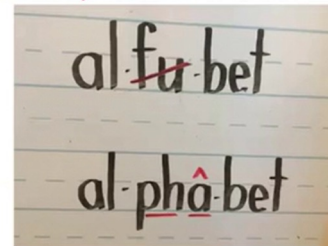 al·fu·bet
al·phâ·bet